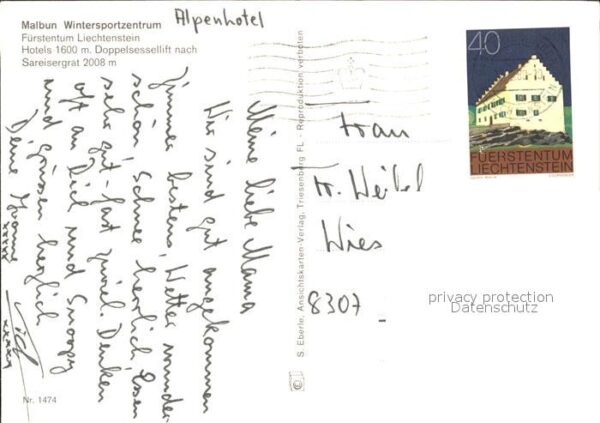 Malbun Wintersportzentrum
Fürstentum Liechtenstein
Hotels 1600 m. Doppelsessellift nach
Sareisergrat 2008 m
Alpenhotel
Meine liebe Mama
Wir sind gut angekommen
Zimmer bestens, Wetter wunder
schön Schnee herrlich Essen
sehr gut - fast zuviel. Denken
oft an Dich und Snoopy
und grüssen herzlich
Deine Yvonne
xxxxx
xxxxx
Nr. 1474
S. Eberle, Ansichtskarten-Verlag, Triesenberg FL - Reproduktion verboten
40
FUERSTENTUM
LIECHTENSTEIN
Frau
Weibel
Wies
8307
privacy protection
Datenschutz